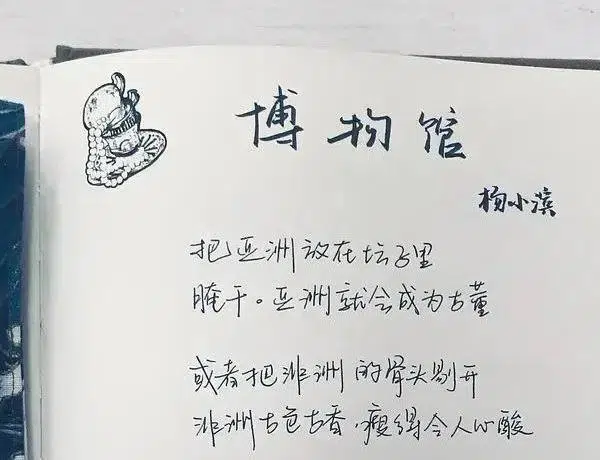 博物馆
杨小滨
把亚洲放在坛子里
腌干。亚洲就会成为古董
或者把非洲的骨头剔开
非洲古色古香，瘦得令人心酸